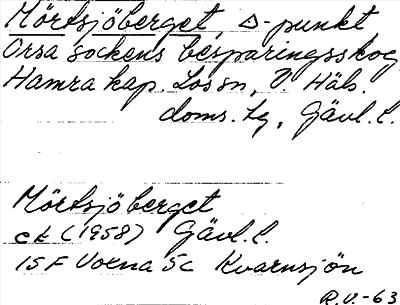 Mörtsjöberget, Δ-punkt
Orsa sockens besparingsskog,
Hamra kap. Los sn, V. Häls.
doms. lg, Gävl. l.
Mörtsjöberget
ek (1958) Gävl. l.
15F Voxna 5c Kvarnsjön
R.U.-63